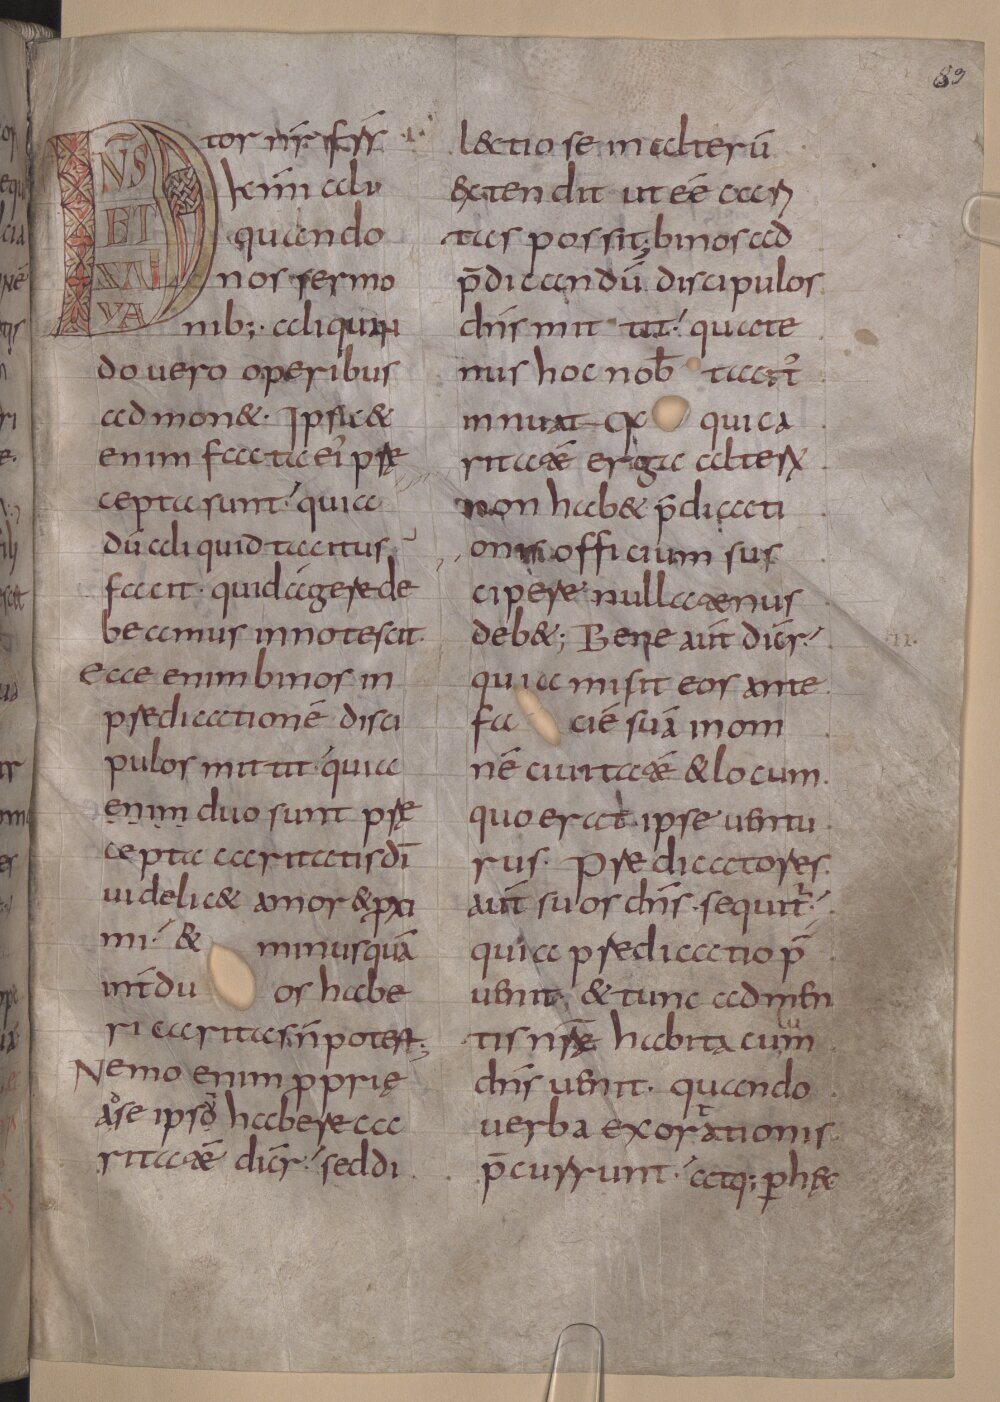 89
DN̄S ET SALVA
tor nr̄. fr̄s̄
kr̄m̄ ali
quando
nos sermo
nib;. aliquan
do uero operibus
admon&. Ipsa&
enim facta ei' pre
cepta sunt. quia
dū aliquid tacitus
facit. quid agere de
beamus innotescit.
Ecce enim binos in
predicationē disci
pulos mittit. quia
enim duo sunt prę
cepta caritatis dī
uidelic& amor & ꝓxi
mi. & minus quā
int̄ duos habe
ri caritas n̄ potest;
Nemo enim ꝓprię
ad se ipsū habere ca
ritatē dicr̄. sed di
lectio se in alterū
extendit ut eē cari
tas possit; binos ad
p̄dicandū discipulos
dn̄s mittit. quate
nus hoc nob̄ tacit'
innuat. Qr qui ca
ritatē erga alterū
non hab& p̄dicati
onis officium sus
cipere nullatenus
deb&; Bene aūt dicr̄.
quia misit eos ante
faciē suā in om
nē ciuitatē & locum.
quo erat ipse uentu
rus. Predicatores
aūt suos dn̄s sequitr̄.
quia predicatio p̄
uenit. & tunc ad men
tis nr̄ę habitacum
dn̄s uenit. quando
uerba exortationis
p̄currunt. atq; ꝑ hęc